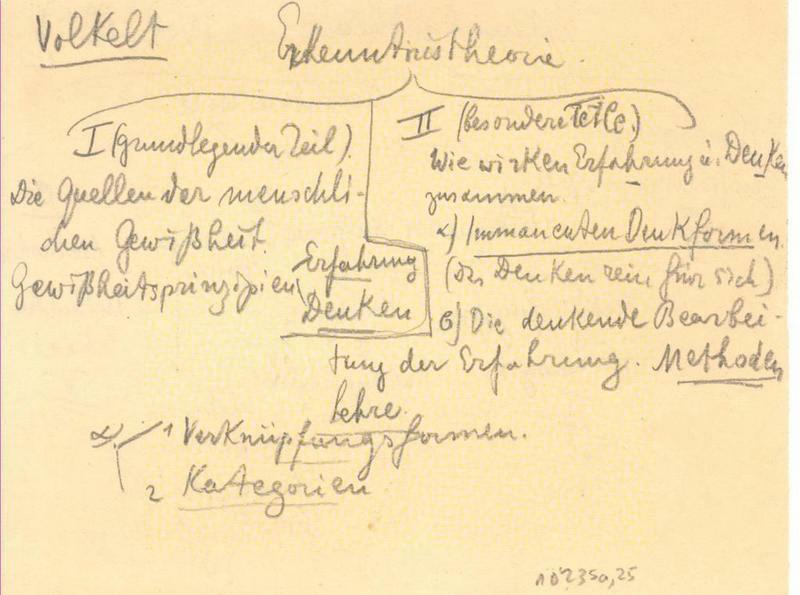 Volkelt
Erkenntnistheorie.
I (Grundlegender Teil).
Die Quellen der menschli-
chen Gewißheit.
Gewißheitsprinzipien
Erfahrung
Denken
II (besondere Teile.)
Wie wirken Erfahrung u. Denken
zusammen.
α) Immanenten Denkformen.
(Das Denken rein für sich)
β) Die denkende Bearbei-
tung der Erfahrung. Methoden
lehre.
α. 1 Verknüpfungsformen.
2 Kategorien
10235a,25